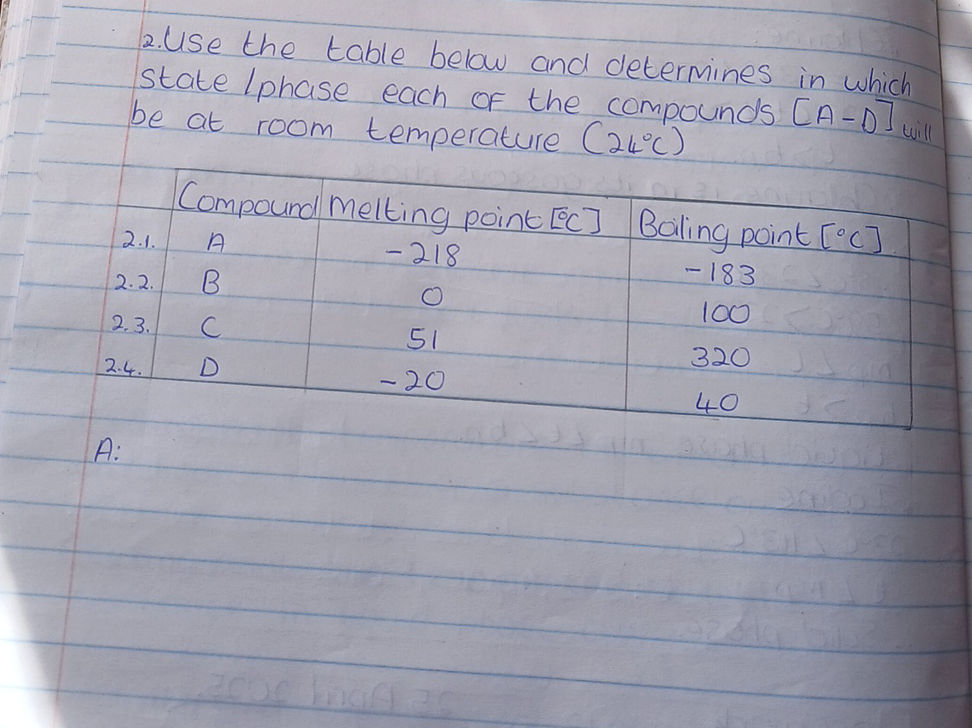 2. Use the table below and determines in which
state / phase each of the compounds [A-D] will
be at room temperature (24°C)
Compound Melting point [°C] Boiling point [°C]
2.1. A -218 -183
2.2. B 0 100
2.3. C 51 320
2.4. D -20 40
A: